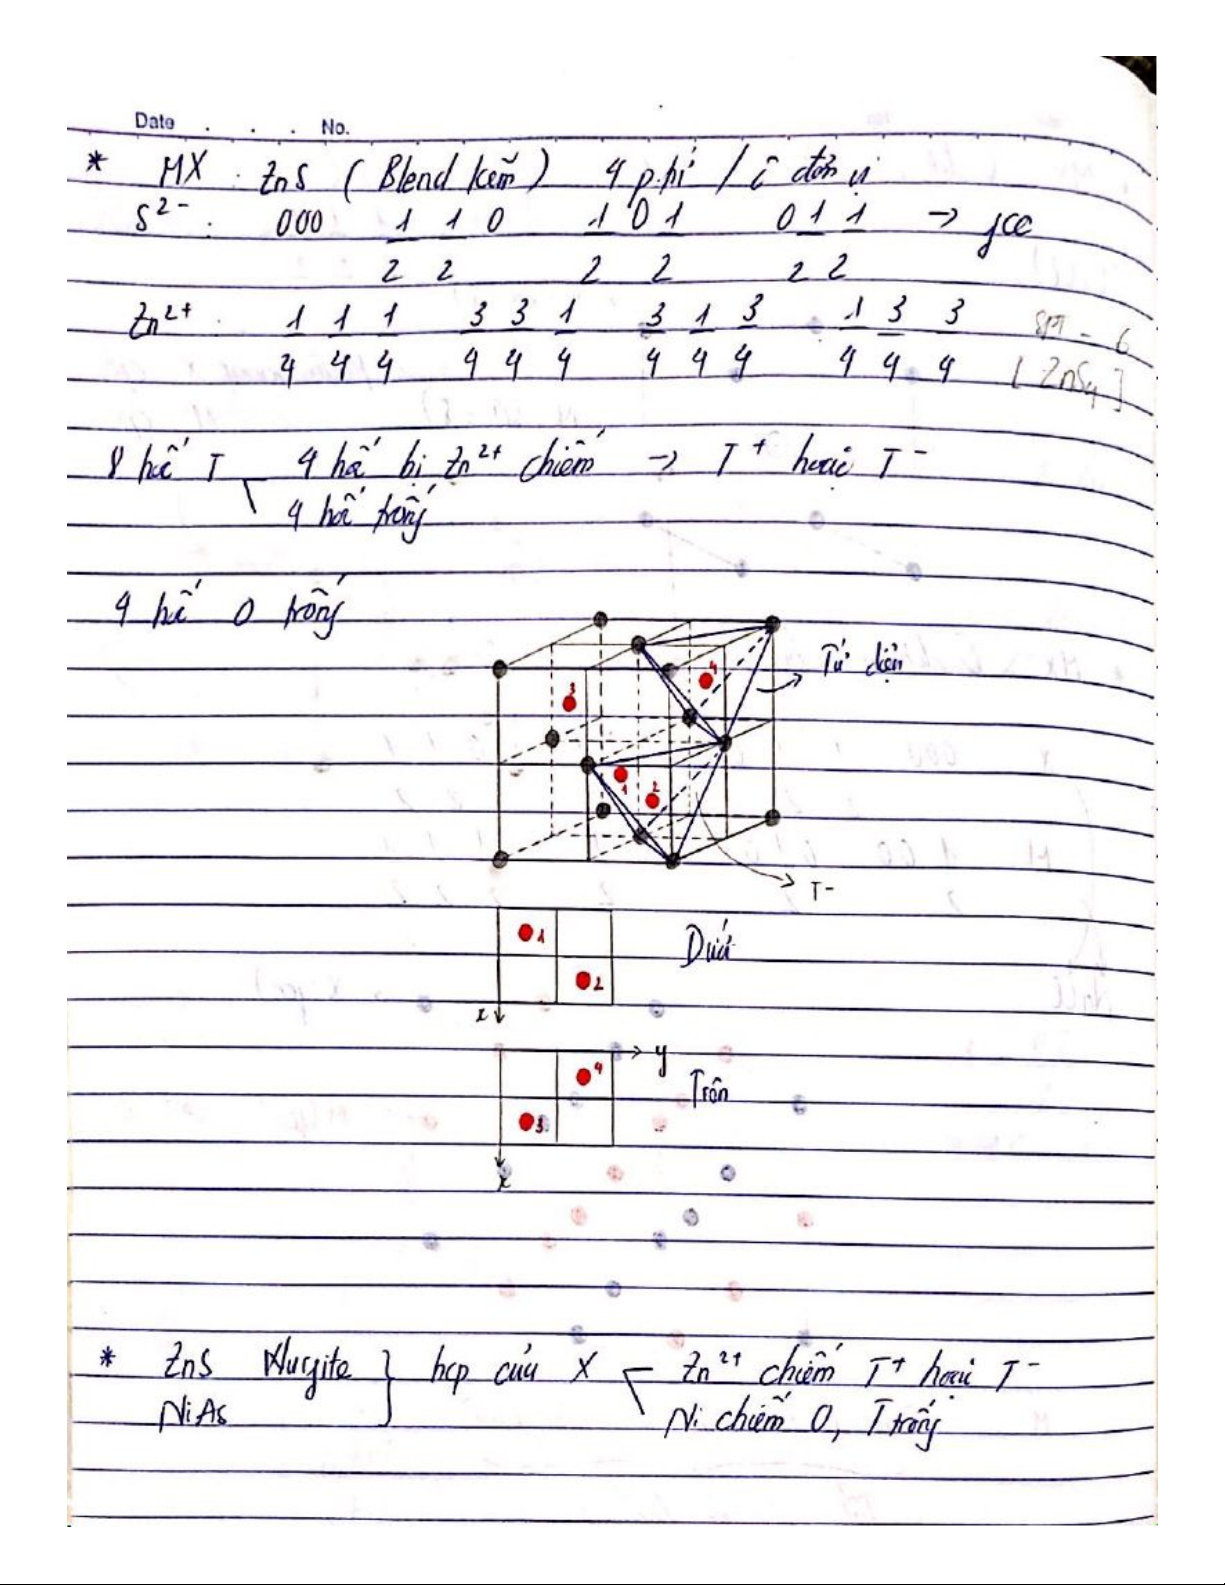 Date . . . No.
* MX : ZnS ( Blend kẽm ) 4 p.tử / ô đơn vị
S²⁻ : 000 1/2 1/2 0 1/2 0 1/2 0 1/2 1/2 → fcc
Zn²⁺ : 1/4 1/4 1/4 3/4 3/4 1/4 3/4 1/4 3/4 1/4 3/4 3/4
[ZnS₄]
8 hốc T 4 hốc bị Zn²⁺ chiếm → T⁺ hoặc T⁻
4 hốc trống
4 hốc O trống
4
Tứ diện
3
1
2
T⁻
1
Dưới
2
x
y
4
Trên
3
x
* ZnS Wurzite } hcp của X Zn²⁺ chiếm T⁺ hoặc T⁻
NiAs Ni chiếm O, T trống